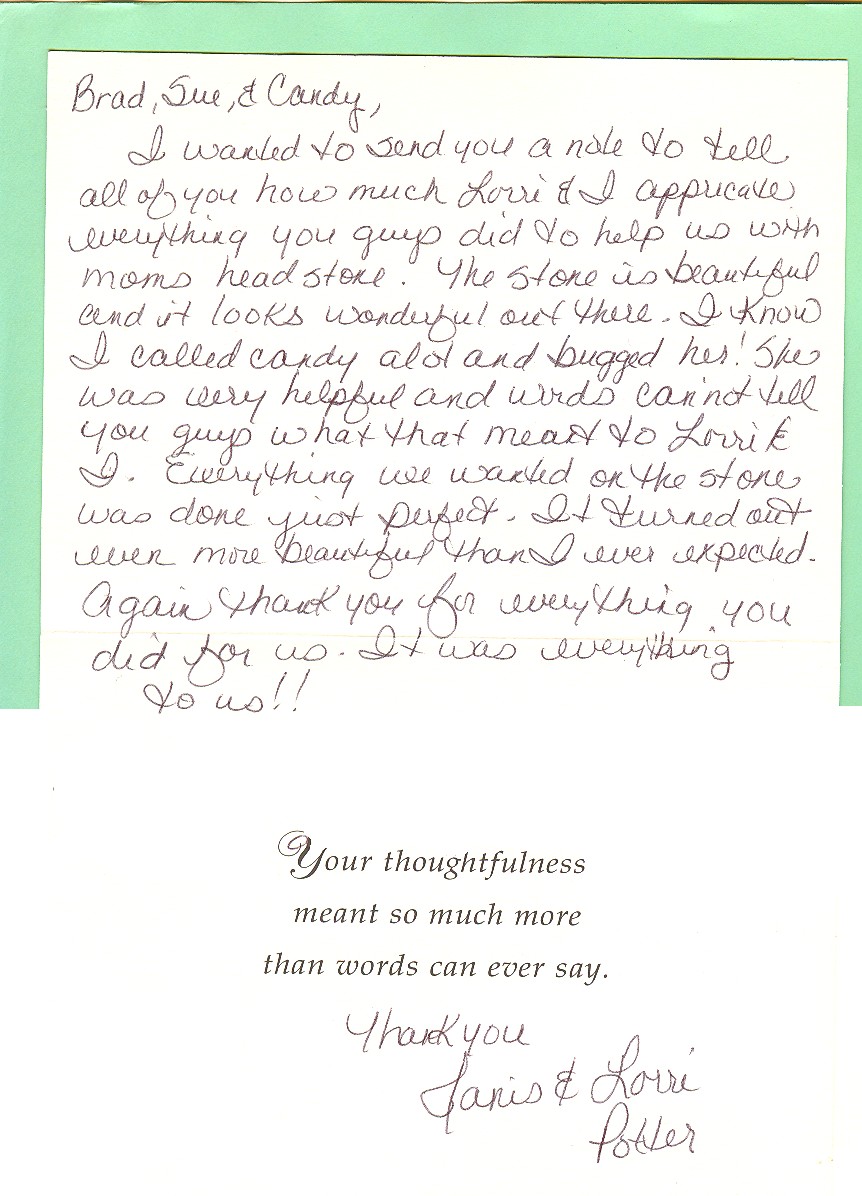 Brad, Sue, & Candy,
I wanted to send you a note to tell
all of you how much Lorri & I appricate
everything you guys did to help us with
moms head stone. The stone is beautiful
and it looks wonderful out there. I know
I called candy alot and bugged her! She
was very helpful and words can'not tell
you guys what that meant to Lorri &
I. Everything we wanted on the stone
was done just perfect. It turned out
even more beautiful than I ever expected.
Again thank you for everything you
did for us. It was everything
to us!!
Your thoughtfulness
meant so much more
than words can ever say.
Thank you
Janis & Lorri
Potter